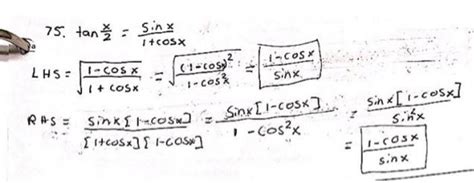 75. tan x/2 = sin x / 1+cosx
LHS = √(1-cosx / 1+cosx) = √((1-cosx)² / 1-cos²x) = 1-cosx / sinx
RHS = sinx[1-cosx] / [1+cosx][1-cosx] = sinx[1-cosx] / 1-cos²x = sinx[1-cosx] / sin²x
= 1-cosx / sinx